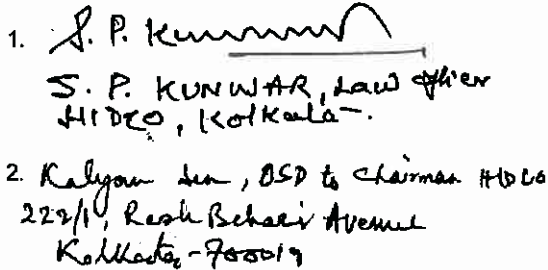 1. S. P. Kunwar
S. P. KUNWAR, Law Officer
HIDCO, Kolkata-.
2. Kalyan Sen, OSD to Chairman HIDCO
222/1, Rash Behari Avenue
Kolkata-700019